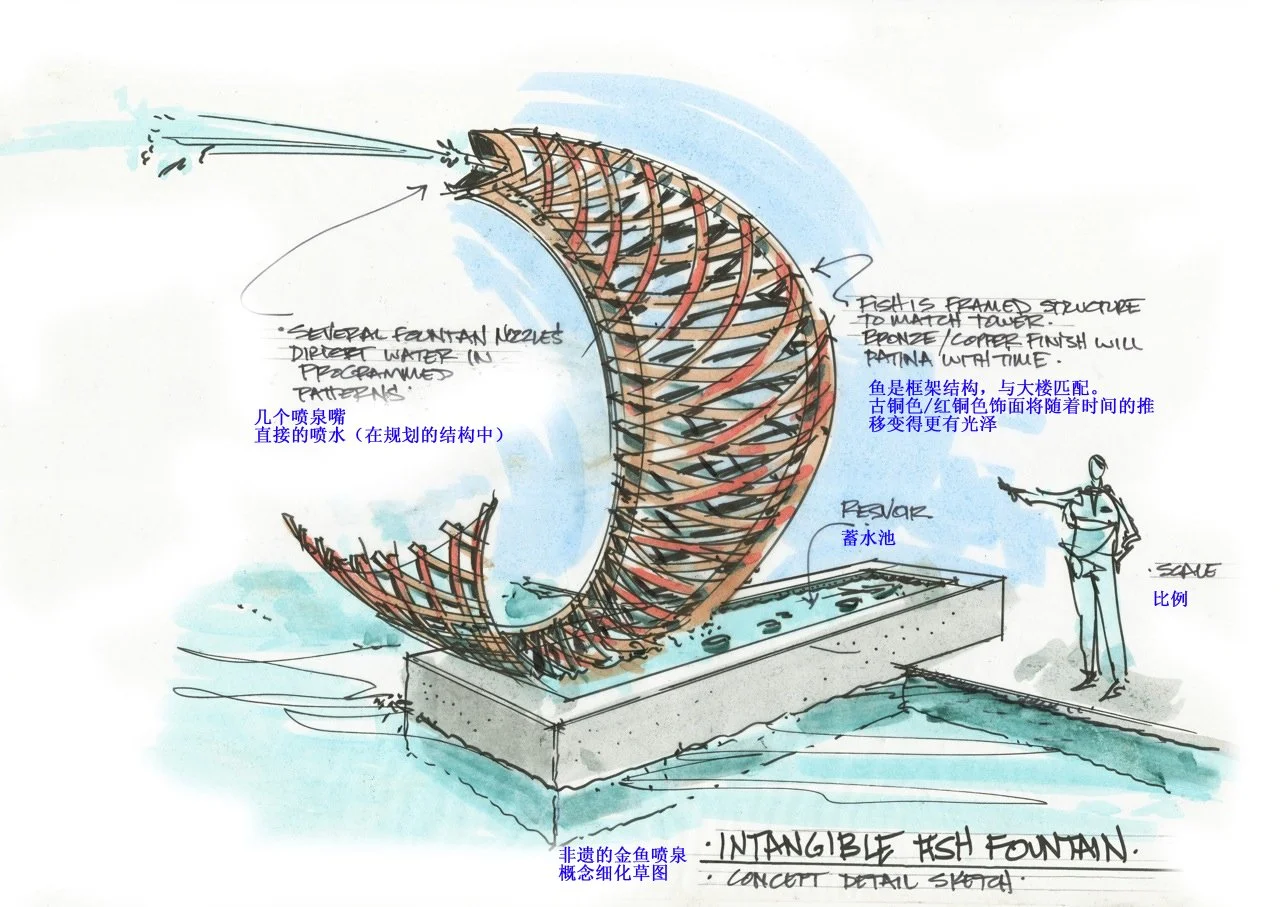 · SEVERAL FOUNTAN NOZZLES
DIRECT WATER IN
PROGRAMMED
PATTERNS.
几个喷泉嘴
直接的喷水（在规划的结构中）
FISH IS FRAMED STRUCTURE
TO MATCH TOWER.
BRONZE/COPPER FINISH WILL
PATINA WITH TIME.
鱼是框架结构，与大楼匹配。
古铜色/红铜色饰面将随着时间的推
移变得更有光泽
RESVOIR
蓄水池
· SCALE
比例
· INTANGIBLE FISH FOUNTAIN.
· CONCEPT DETAIL SKETCH.
非遗的金鱼喷泉
概念细化草图